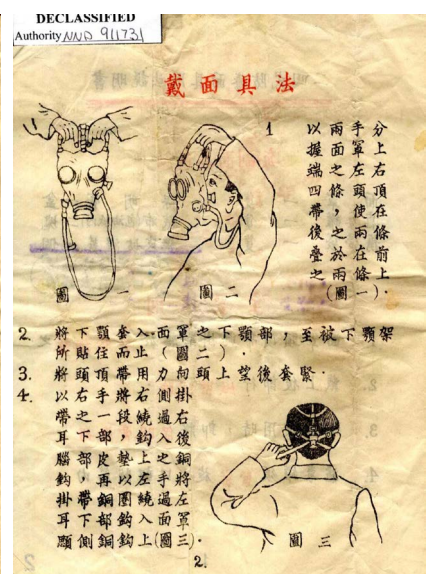 DECLASSIFIED
Authority NND 911731
戴面具法
1 以兩手分
握面罩上
端之左右
四條頭頂
帶，使在
後之兩條
疊於在前
之兩條上.
(圖一)
圖一
圖二
2. 將下顎套入面罩之下顎部，至被下顎架
所貼住而止(圖二).
3. 將頭頂帶用力向頭上望後套緊.
4. 以右手將右側掛
帶之一段繞過右
耳下部，鈎入後
腦部皮墊上之銅
鈎，再以左手將
掛帶銅圈繞過左
耳下部鈎入面罩
顎側銅鈎上(圖三).
圖三
2.